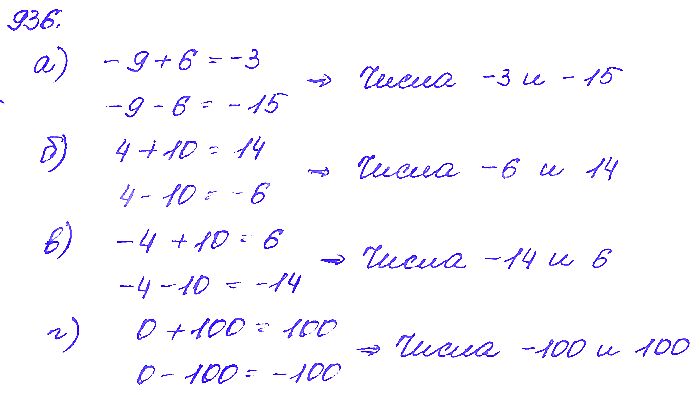 936.
а) -9+6=-3
-9-6=-15 ⇒ Числа -3 и -15
б) 4+10=14
4-10=-6 ⇒ Числа -6 и 14
в) -4+10=6
-4-10=-14 ⇒ Числа -14 и 6
г) 0+100=100
0-100=-100 ⇒ Числа -100 и 100